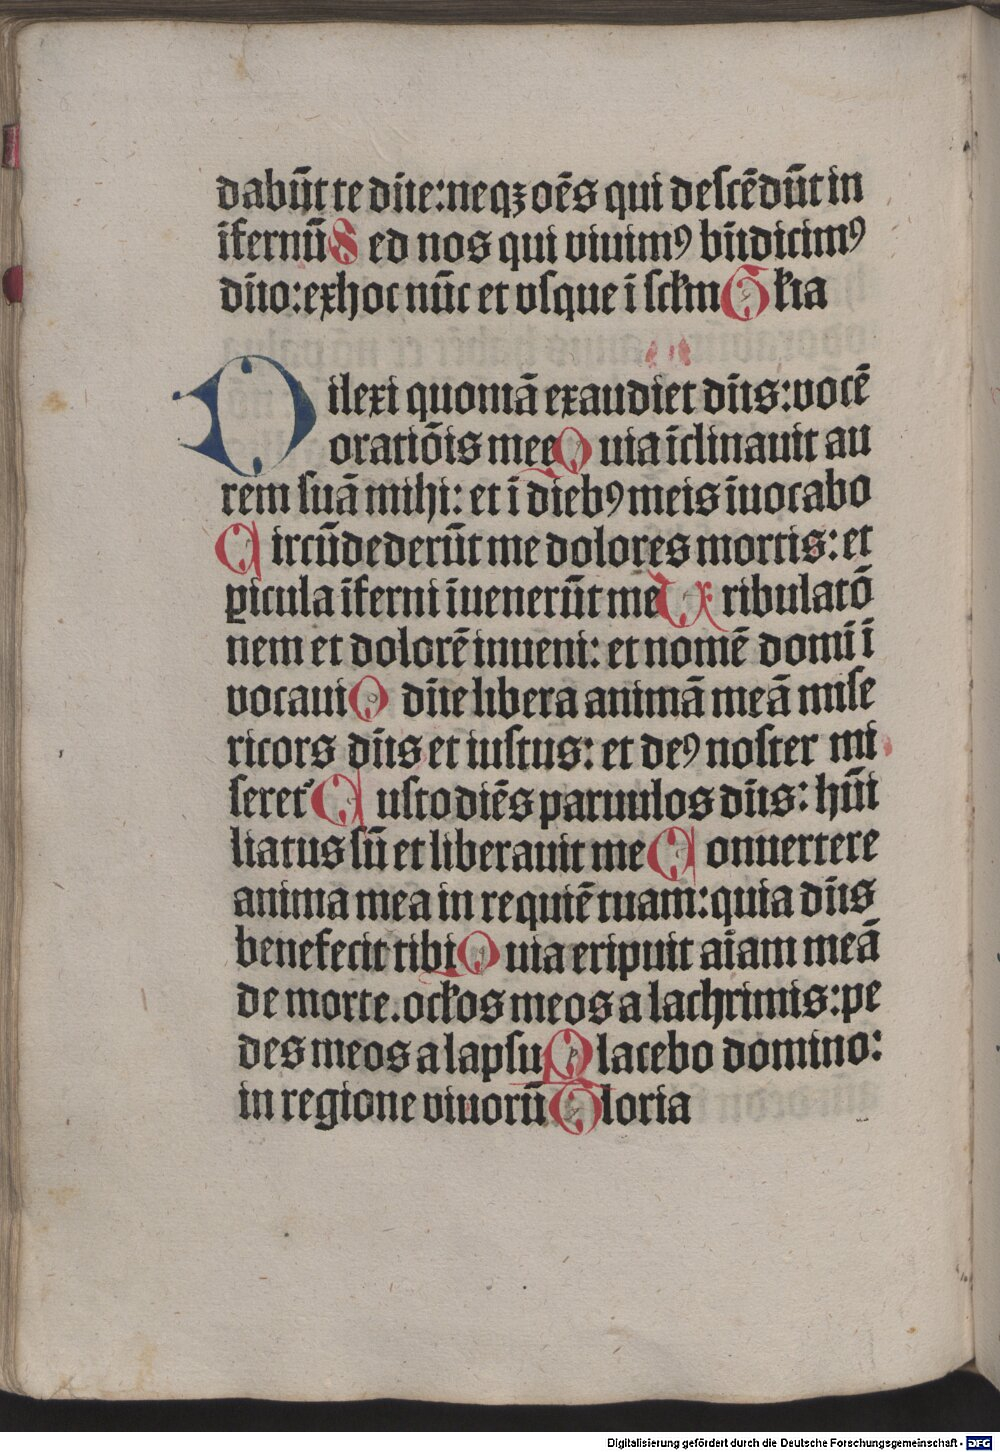 dabūt te dn̄e:neqꝫ oēs qui descēdūt in
īfernū Sed nos qui viuimꝰ bn̄dicimꝰ
dn̄o:exhoc nūc et vsque ī sclm Glia
Dilexi quoniā exaudiet dn̄s:vocē
oratiōis mee Quia īclinauit au
rem suā mihi: et ī diebꝰ meis īuocabo
Circūdederūt me dolores mortis: et
ꝑicula īferni īuenerūt me Tribulatō
nem et dolorē inueni: et nomē domī ī
vocaui O dn̄e libera animā meā mise
ricors dn̄s et iustus: et deꝰ noster mi
seret᷑ Custodiēs paruulos dn̄s: hūi
liatus sū et liberauit me Conuertere
anima mea in requiē tuam:quia dn̄s
benefecit tibi Quia eripuit aīam meā
de morte.oclos meos a lachrimis:pe
des meos a lapsu Placebo domino:
in regione viuorū Gloria
Digitalisierung gefördert durch die Deutsche Forschungsgemeinschaft - DFG